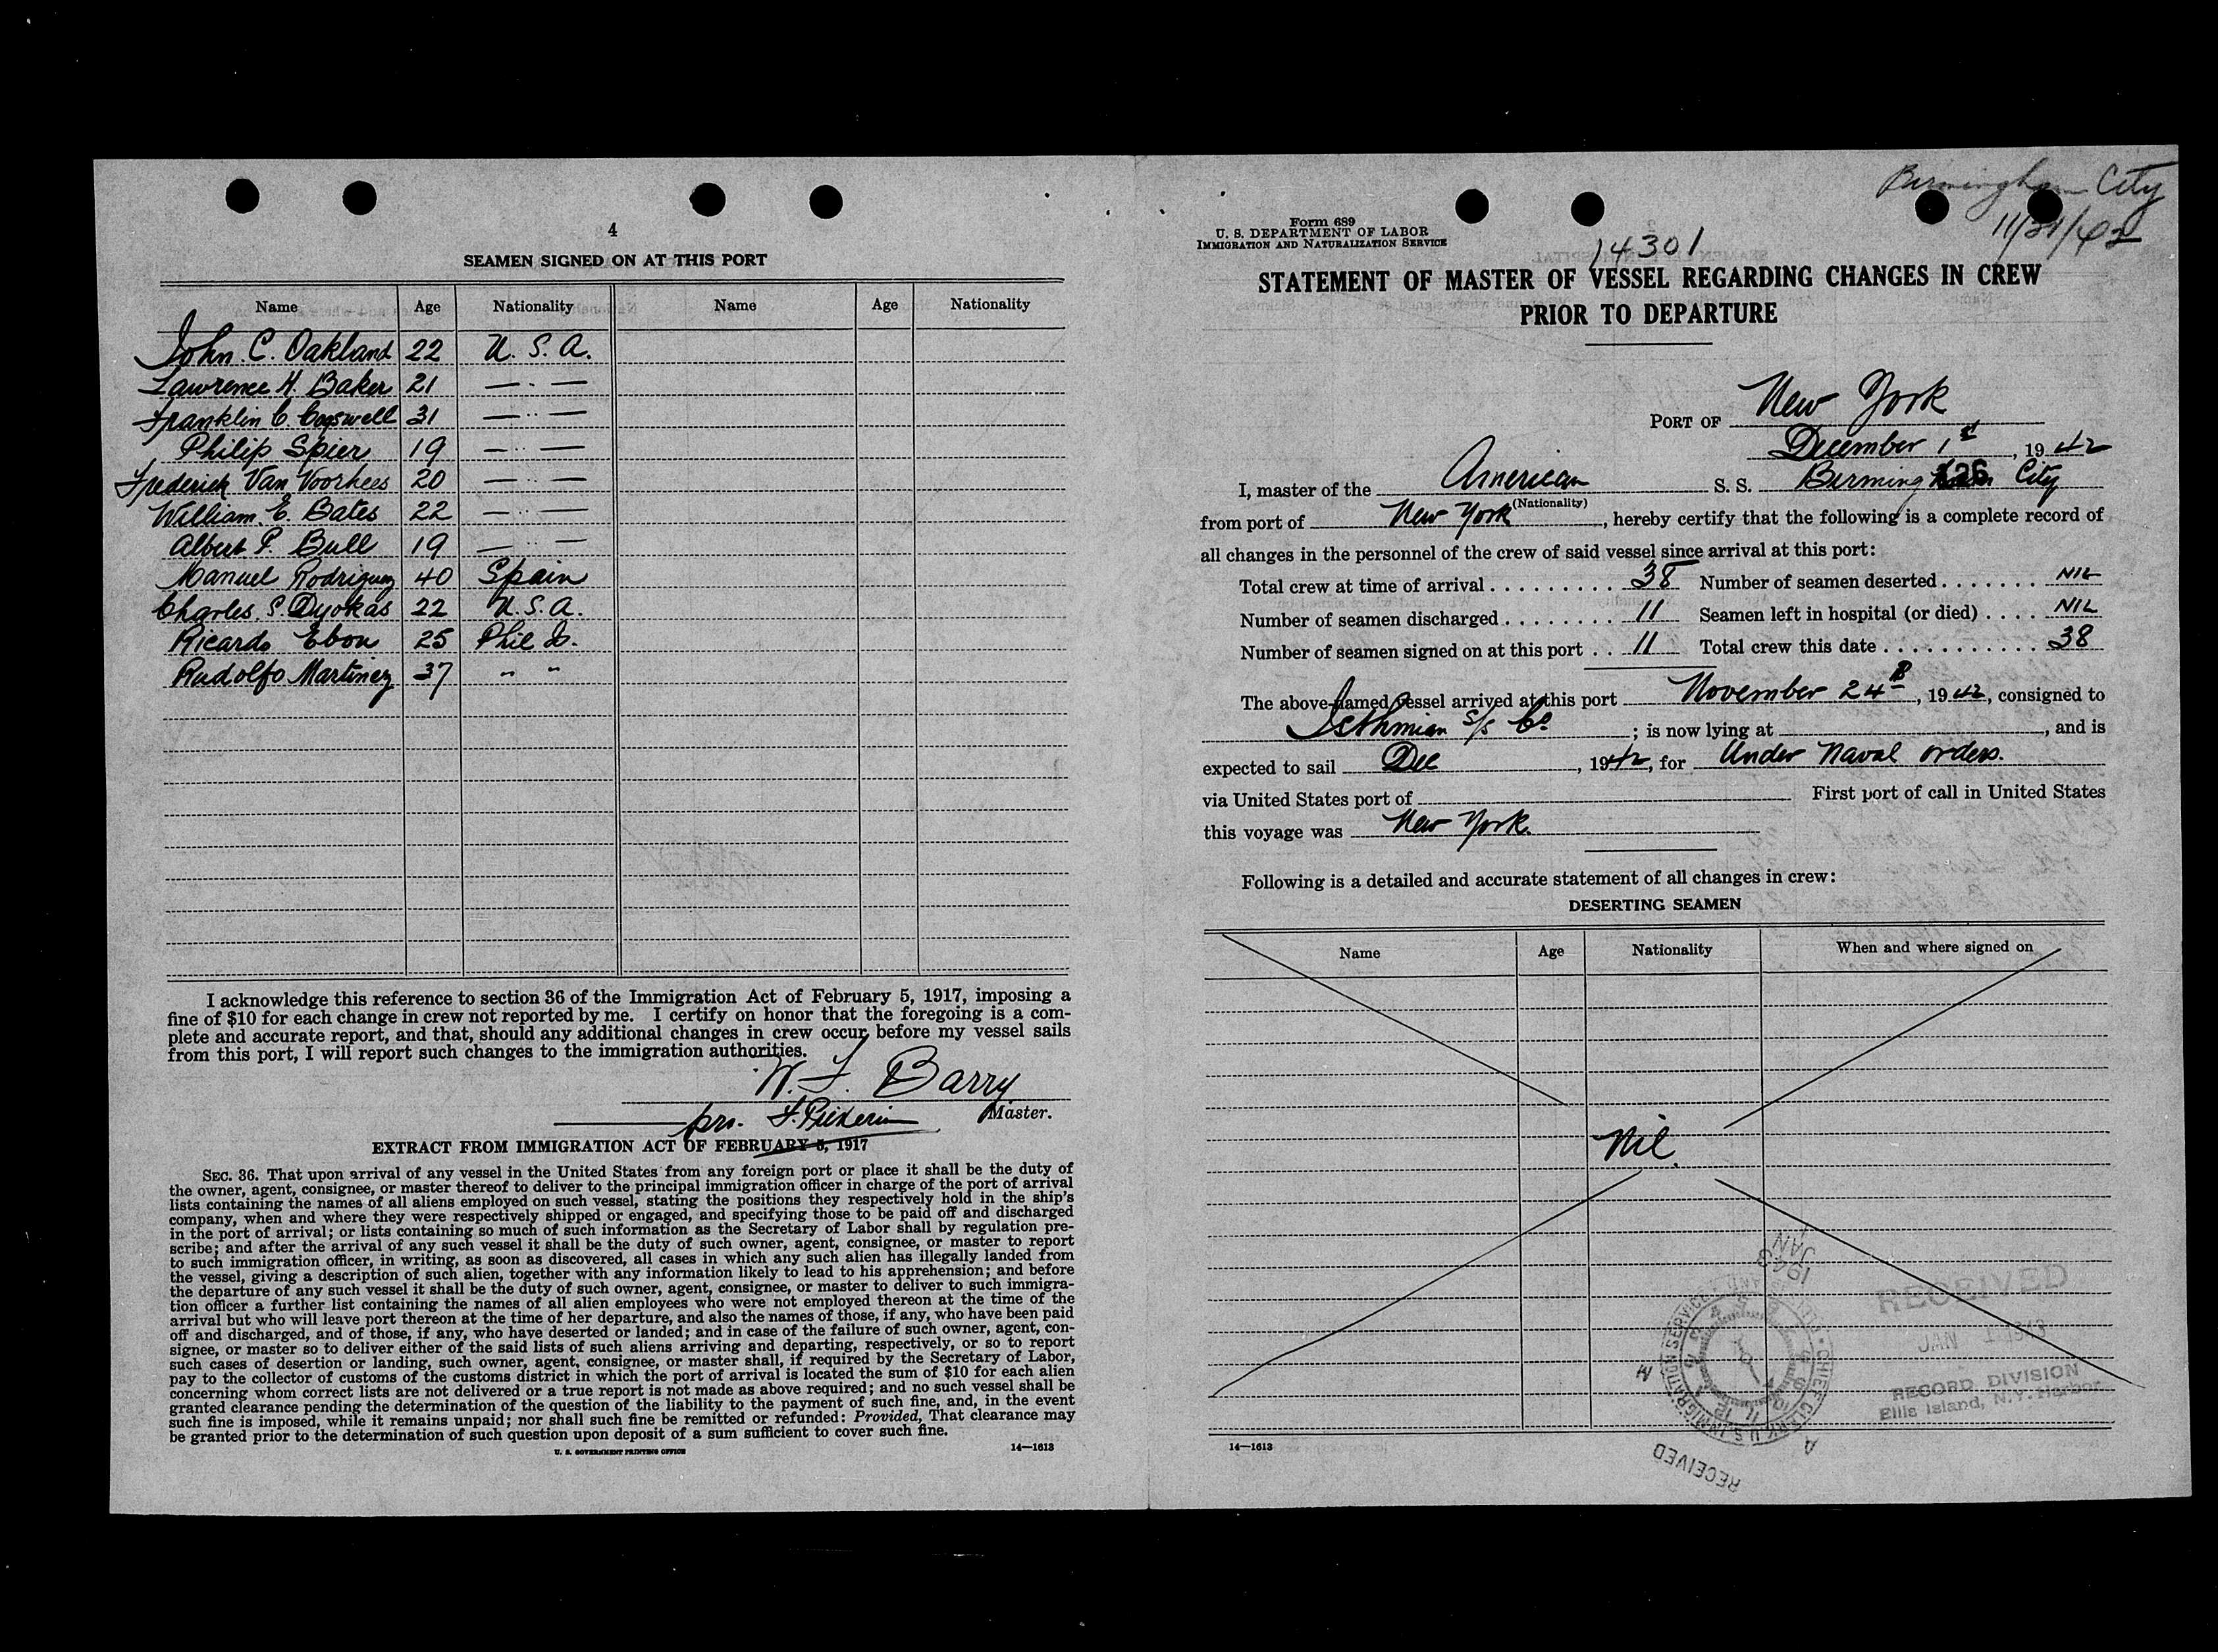 4
SEAMEN SIGNED ON AT THIS PORT
Name Age Nationality Name Age Nationality
John C. Oakland 22 U. S. A.
Lawrence H. Baker 21 — · —
Franklin C. Cogswell 31 — ·· —
Philip Spier 19 — ·· —
Frederick Van Voorhees 20 — ·· —
William E. Bates 22 — ·· —
Albert P. Bull 19 — ·· —
Manuel Rodriguez 40 Spain
Charles S. Dyokas 22 U.S.A.
Ricardo Ebon 25 Phil Is.
Rudolfo Martinez 37 " "
I acknowledge this reference to section 36 of the Immigration Act of February 5, 1917, imposing a
fine of $10 for each change in crew not reported by me. I certify on honor that the foregoing is a com-
plete and accurate report, and that, should any additional changes in crew occur before my vessel sails
from this port, I will report such changes to the immigration authorities.
W. F. Barry
pro. F. Master.
EXTRACT FROM IMMIGRATION ACT OF FEBRUARY 5, 1917
SEC. 36. That upon arrival of any vessel in the United States from any foreign port or place it shall be the duty of
the owner, agent, consignee, or master thereof to deliver to the principal immigration officer in charge of the port of arrival
lists containing the names of all aliens employed on such vessel, stating the positions they respectively hold in the ship's
company, when and where they were respectively shipped or engaged, and specifying those to be paid off and discharged
in the port of arrival; or lists containing so much of such information as the Secretary of Labor shall by regulation pre-
scribe; and after the arrival of any such vessel it shall be the duty of such owner, agent, consignee, or master to report
to such immigration officer, in writing, as soon as discovered, all cases in which any such alien has illegally landed from
the vessel, giving a description of such alien, together with any information likely to lead to his apprehension; and before
the departure of any such vessel it shall be the duty of such owner, agent, consignee, or master to deliver to such immigra-
tion officer a further list containing the names of all alien employees who were not employed thereon at the time of the
arrival but who will leave port thereon at the time of her departure, and also the names of those, if any, who have been paid
off and discharged, and of those, if any, who have deserted or landed; and in case of the failure of such owner, agent, con-
signee, or master so to deliver either of the said lists of such aliens arriving and departing, respectively, or so to report
such cases of desertion or landing, such owner, agent, consignee, or master shall, if required by the Secretary of Labor,
pay to the collector of customs of the customs district in which the port of arrival is located the sum of $10 for each alien
concerning whom correct lists are not delivered or a true report is not made as above required; and no such vessel shall be
granted clearance pending the determination of the question of the liability to the payment of such fine, and, in the event
such fine is imposed, while it remains unpaid; nor shall such fine be remitted or refunded: Provided, That clearance may
be granted prior to the determination of such question upon deposit of a sum sufficient to cover such fine.
U. S. GOVERNMENT PRINTING OFFICE 14—1613
Birmingham City
11/24/42
Form 689
U. S. DEPARTMENT OF LABOR
IMMIGRATION AND NATURALIZATION SERVICE
14301
STATEMENT OF MASTER OF VESSEL REGARDING CHANGES IN CREW
PRIOR TO DEPARTURE
PORT OF New York
December 1st, 1942
I, master of the American S. S. Birmingham City
126
(Nationality)
from port of New York, hereby certify that the following is a complete record of
all changes in the personnel of the crew of said vessel since arrival at this port:
Total crew at time of arrival . . . . . . . . . 38 Number of seamen deserted . . . . . . . NIL
Number of seamen discharged . . . . . . . . 11 Seamen left in hospital (or died) . . . . NIL
Number of seamen signed on at this port . . 11 Total crew this date . . . . . . . . . . . 38
The above-named vessel arrived at this port November 24th, 1942, consigned to
Isthmian S/S Co; is now lying at , and is
expected to sail Dec, 1942, for Under Naval orders.
via United States port of First port of call in United States
this voyage was New York.
Following is a detailed and accurate statement of all changes in crew:
DESERTING SEAMEN
Name Age Nationality When and where signed on
Nil.
JAN
1943
CHIEF CLERK U.S. IMMIGRATION SERVICE
M
A
RECEIVED
RECEIVED
JAN 1 1943
RECORD DIVISION
Ellis Island, N.Y. Harbor
14—1613